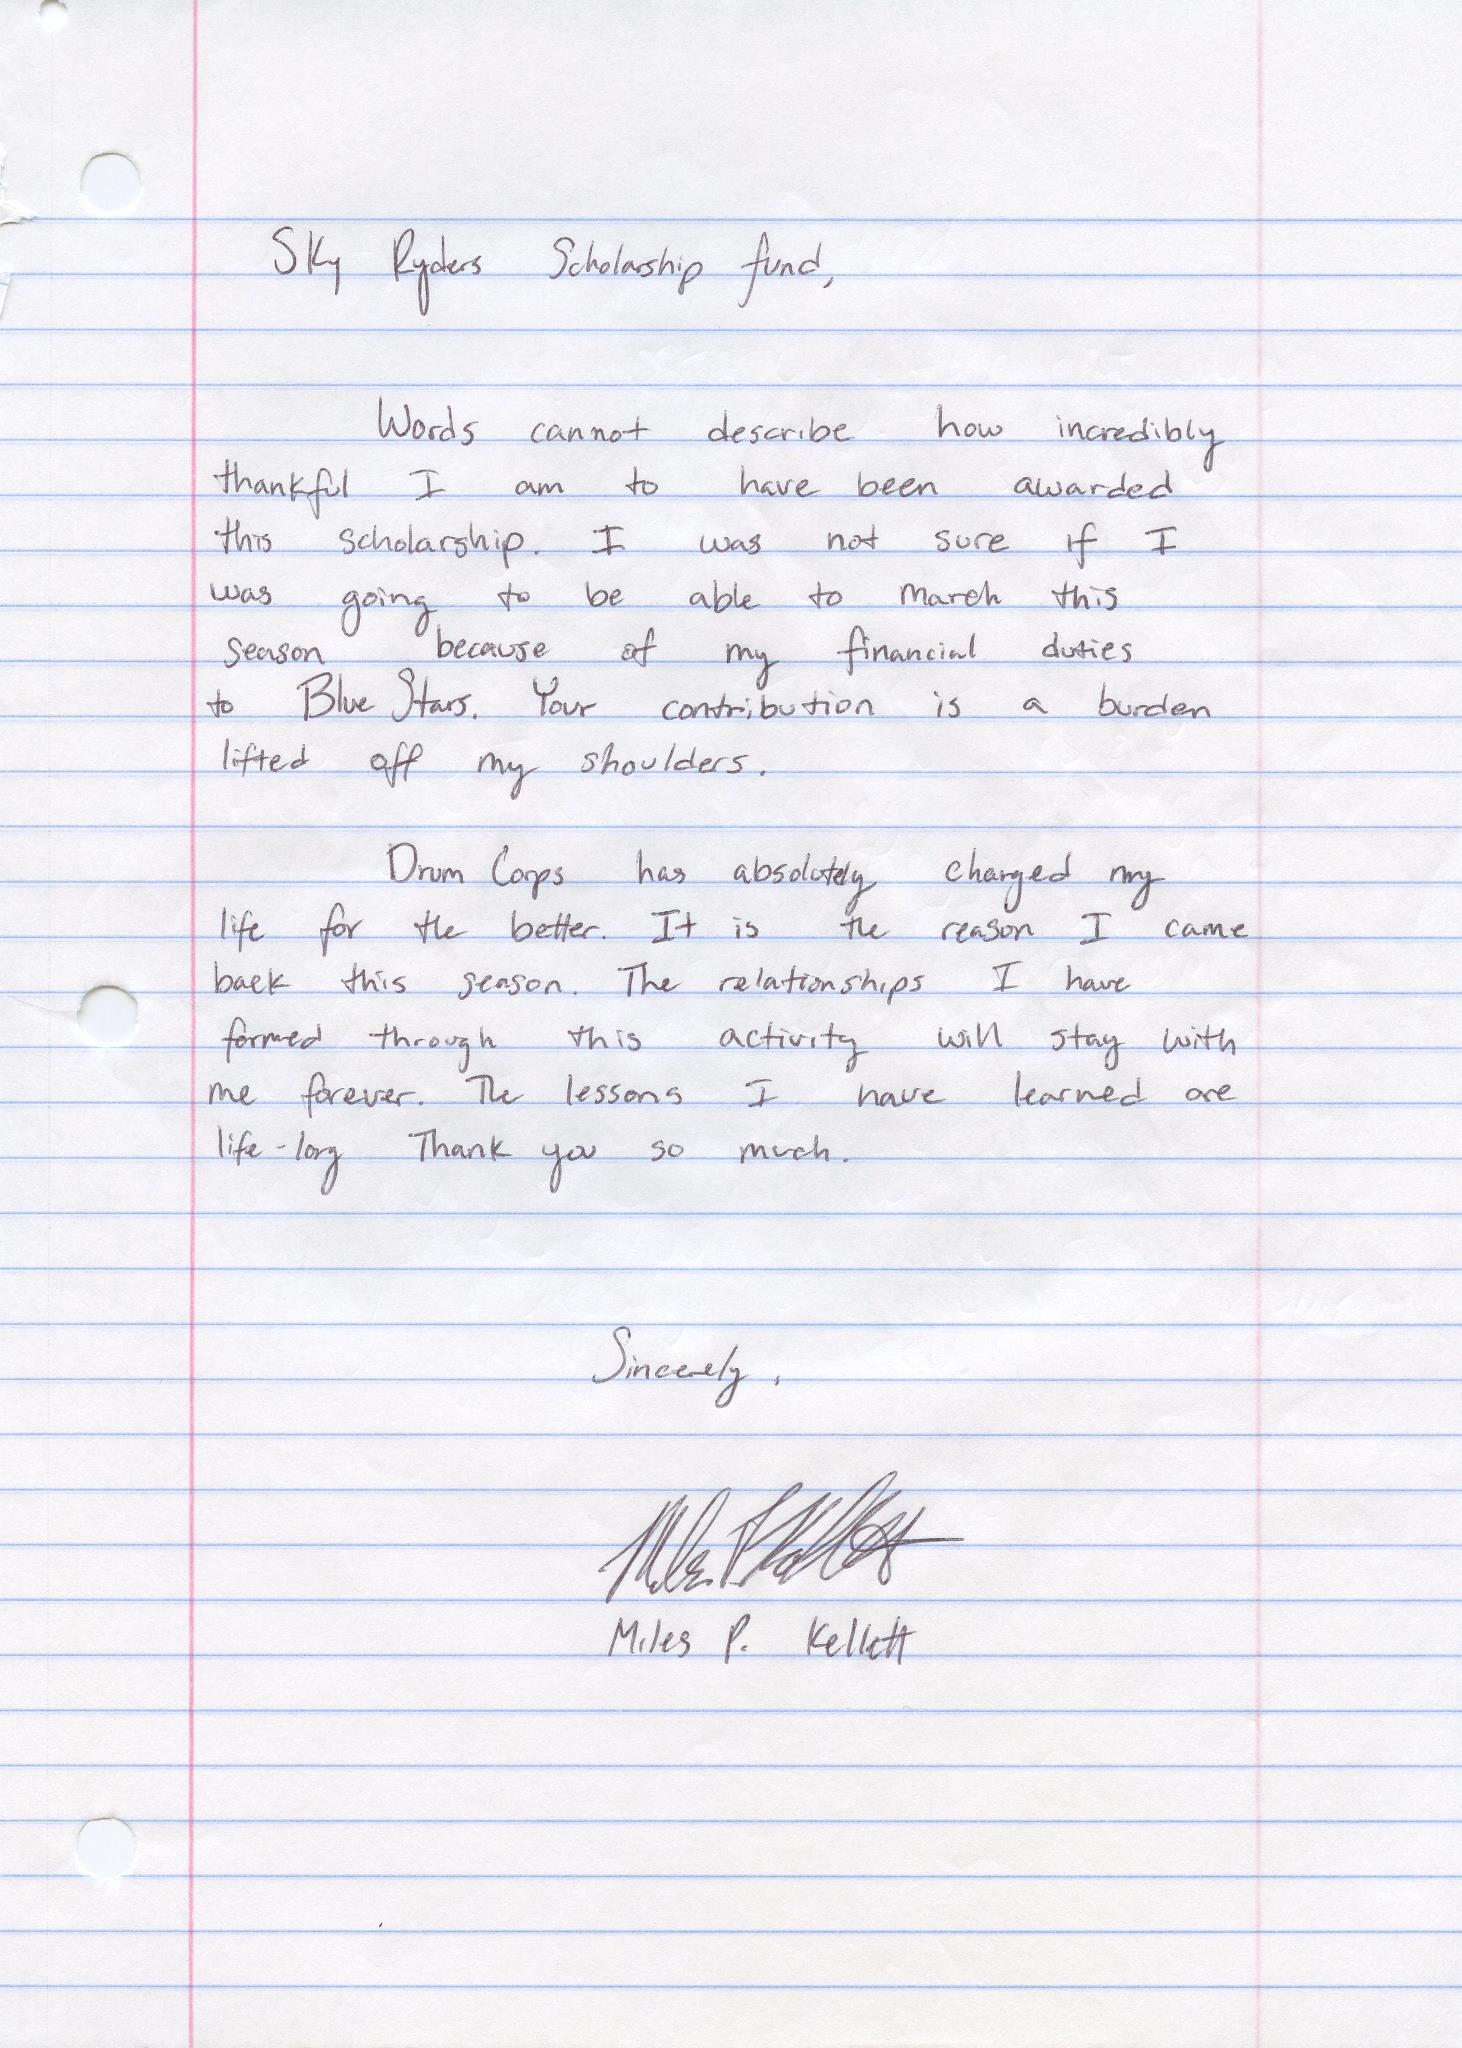 Sky Ryders Scholarship fund,
Words cannot describe how incredibly
thankful I am to have been awarded
this scholarship. I was not sure if I
was going to be able to march this
season because of my financial duties
to Blue Stars. Your contribution is a burden
lifted off my shoulders.
Drum Corps has absolutely changed my
life for the better. It is the reason I came
back this season. The relationships I have
formed through this activity will stay with
me forever. The lessons I have learned are
life-long Thank you so much.
Sincerely,
Miles P Kellett
Miles P. Kellett